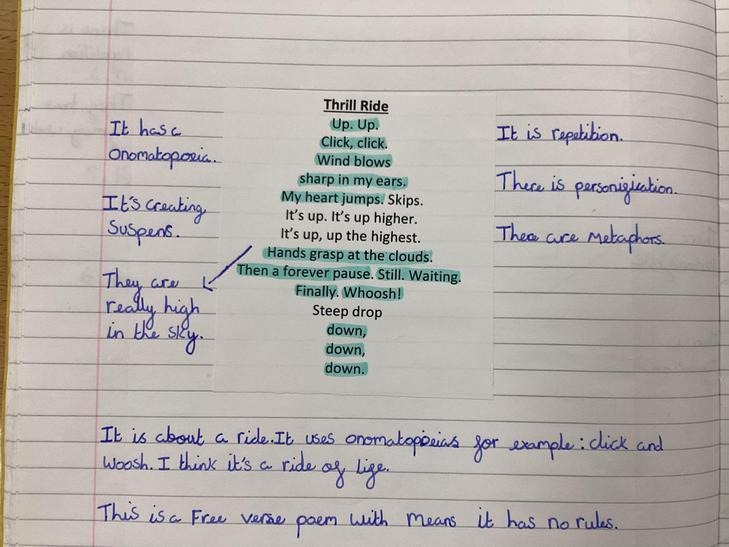 Thrill Ride
Up. Up.
Click, click.
Wind blows
sharp in my ears.
My heart jumps. Skips.
It's up. It's up higher.
It's up, up the highest.
Hands grasp at the clouds.
Then a forever pause. Still. Waiting.
Finally. Whoosh!
Steep drop
down,
down,
down.
It has a
Onomatopoeia.
It's creating
Suspens.
They are
really high
in the sky.
It is repetition.
There is personification.
There are Metaphors.
It is about a ride. It uses onomatopoeias for example: click and
Woosh. I think it's a ride of life.
This is a Free verse poem with means it has no rules.